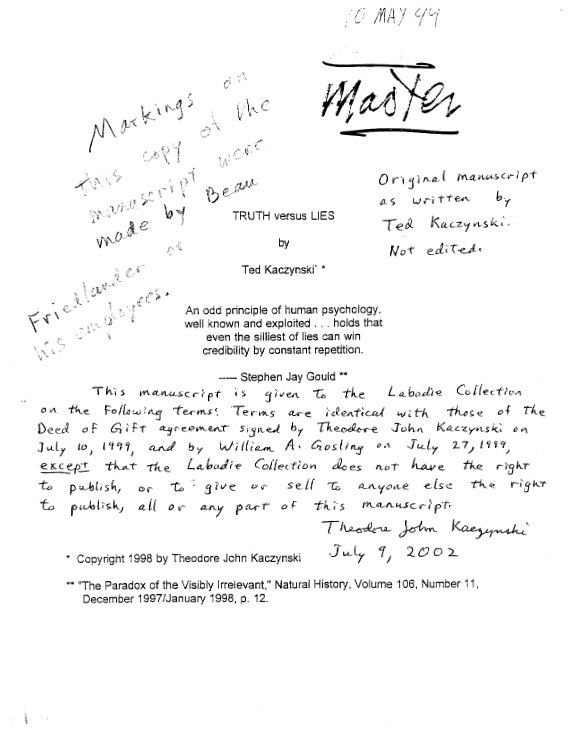 10 MAY 99
Master
Markings on
this copy of the
manuscript were
made by Beau
Friedlander or
his employees.
Original manuscript
as written by
Ted Kaczynski.
Not edited.
TRUTH versus LIES
by
Ted Kaczynski* *
An odd principle of human psychology,
well known and exploited . . . holds that
even the silliest of lies can win
credibility by constant repetition.
---- Stephen Jay Gould **
This manuscript is given to the Labadie Collection
on the following terms: Terms are identical with those of the
Deed of Gift agreement signed by Theodore John Kaczynski on
July 10, 1999, and by William A. Gosling on July 27, 1999,
except that the Labadie Collection does not have the right
to publish, or to give or sell to anyone else the right
to publish, all or any part of this manuscript.
Theodore John Kaczynski
July 9, 2002
* Copyright 1998 by Theodore John Kaczynski
** "The Paradox of the Visibly Irrelevant," Natural History, Volume 106, Number 11,
December 1997/January 1998, p. 12.